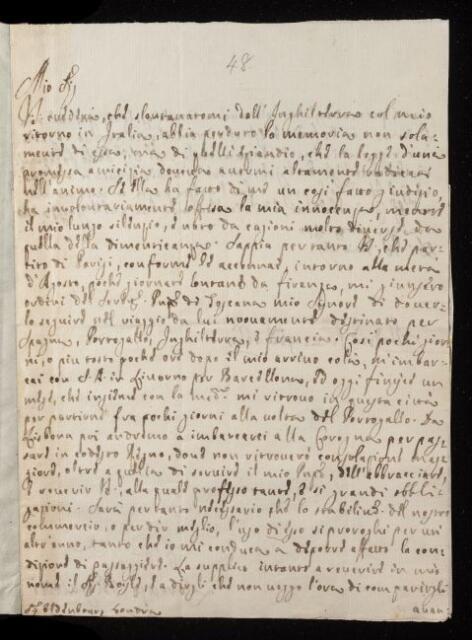 48
Mio Sig.
V. crederà, che slontanatomi dall' Inghilterra col mio
ritorno in Italia, abbia perduto la memoria non sola-
mente di essa, ma di quelli ancora, che la legge d'una
promessa amicizia doveva avermi altamente
nell'animo. S'Ella ha fatto di me un così fatto giudizio,
ha involontariamente offesa la mia innocenza, mentre
il mio lungo silenzio, è nato da cagioni molto diverse da
quella della dimenticanza. Sappia per tanto V. che par-
tito di Parigi, conforme le accennai, intorno alla metà
d'Agosto, poche giornate lontano da Firenze, mi giunsero
ordini del Sereniss. Princ. di Toscana mio Signore di dover-
lo seguire nel viaggio da lui nuovamente destinato per
Spagna, Portogallo, Inghilterra, e Francia. Così pochi gior-
ni, o più tosto poche ore dopo il mio arrivo colà, m'imbar-
cai con S.A. in Livorno per Barcellona, ed oggi finisce un
mese, che insieme con la med.ma mi ritrovo in questa città
per partirne fra pochi giorni alla volta del Portogallo. Da
Lisbona poi andremo a imbarcarci alla Corogna per pas-
sare in codesto Regno, dove non ritroverò consolazione mag-
giore, oltre a quella di servire il mio Princ., dell'abbracciare,
e reverir V., alla quale professo tante, e sì grandi obbli-
gazioni. Sarà per tanto necessario che lo stabilimento del nostro
commercio, o per dir meglio, l'uso di esso si proroghi per un
altr'anno, tanto che io mi conduca a deporre affatto la con-
dizione di passeggiere. La supplico intanto a reverire in mio
nome il Sig. Boyle, e a dirgli che non veggo l'ora di comparirgli
avan-
Sig. Oldenbourg Londra